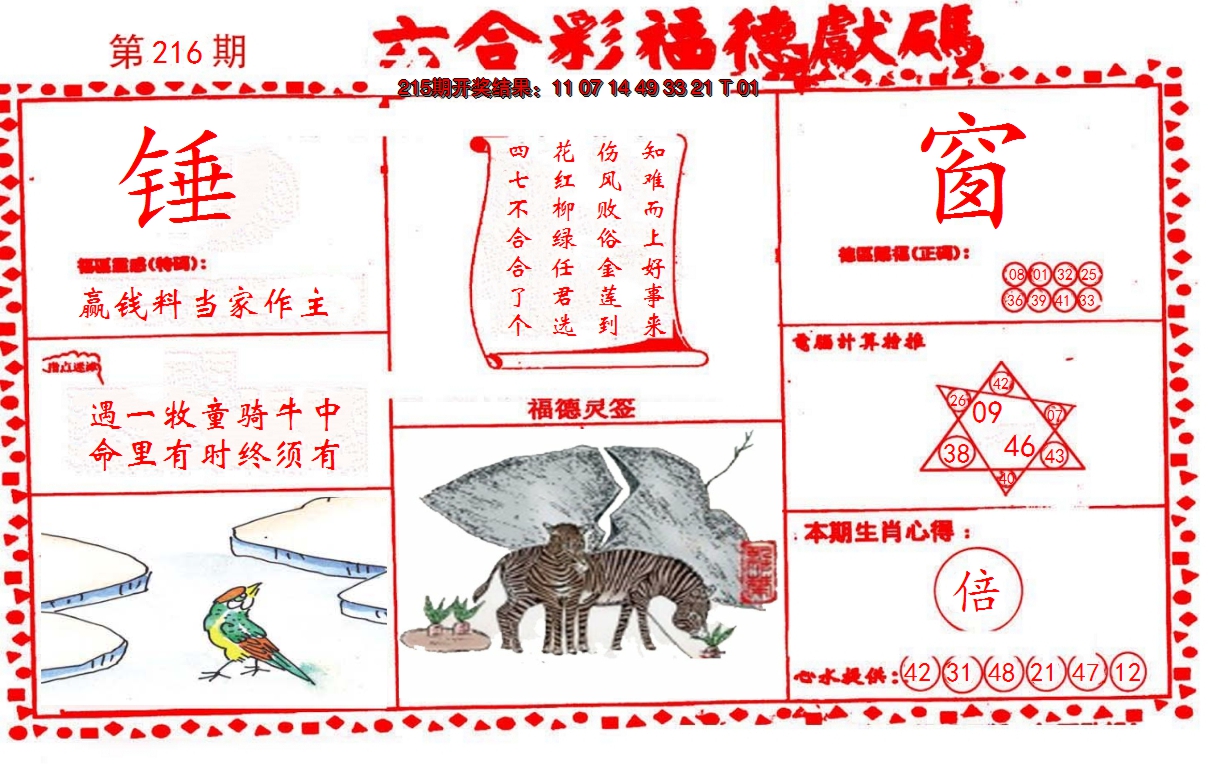 第216期
六合彩福德獻碼
215期开奖结果：11 07 14 49 33 21 T 01
锤
福區靈感(特碼)：
赢钱料当家作主
指点迷津
遇一牧童骑牛中
命里有时终须有
知难而上好事来
伤风败俗金莲到
花红柳绿任君选
四七不合合了个
福德灵签
窗
德區賜福(正碼)：
08 01 32 25
36 39 41 33
電腦计算推
42
26 09 07
38 46 43
40
本期生肖心得：
倍
心水提供：42 31 48 21 47 12